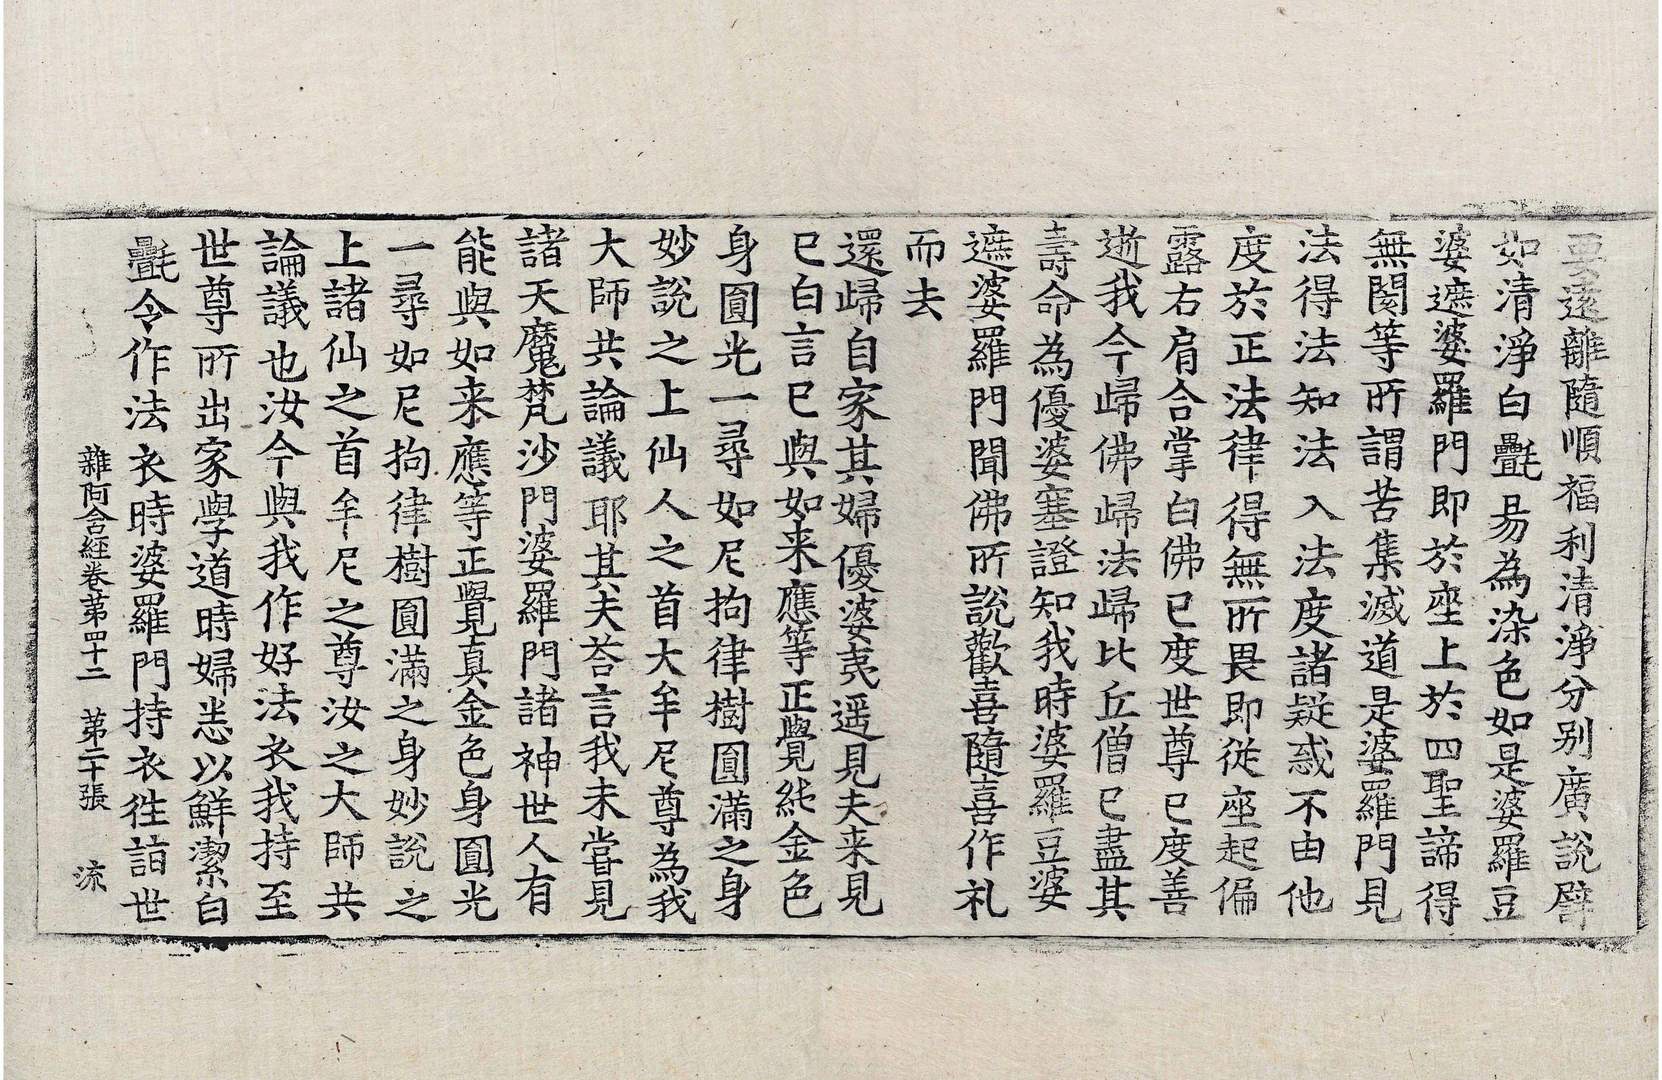 要遠離隨順福利清淨分别廣說譬
如清淨白㲲易為染色如是婆羅豆
婆遮婆羅門即於座上於四聖諦得
無閒等所謂苦集滅道是婆羅門見
法得法知法入法度諸疑惑不由他
度於正法律得無所畏即從座起偏
露右肩合掌白佛已度世尊已度善
逝我今歸佛歸法歸比丘僧已盡其
壽命為優婆塞證知我時婆羅豆婆
遮婆羅門聞佛所說歡喜隨喜作礼
而去
還歸自家其婦優婆夷遥見夫来見
已白言已與如来應等正覺純金色
身圓光一尋如尼拘律樹圓滿之身
妙說之上仙人之首大牟尼尊為我
大師共論議耶其夫荅言我未嘗見
諸天魔梵沙門婆羅門諸神世人有
能與如来應等正覺真金色身圓光
一尋如尼拘律樹圓滿之身妙說之
上諸仙之首牟尼之尊汝之大師共
論議也汝今與我作好法衣我持至
世尊所出家學道時婦悉以鮮潔白
㲲令作法衣時婆羅門持衣徃詣世
雜阿含經卷第四十二 第二十張 流